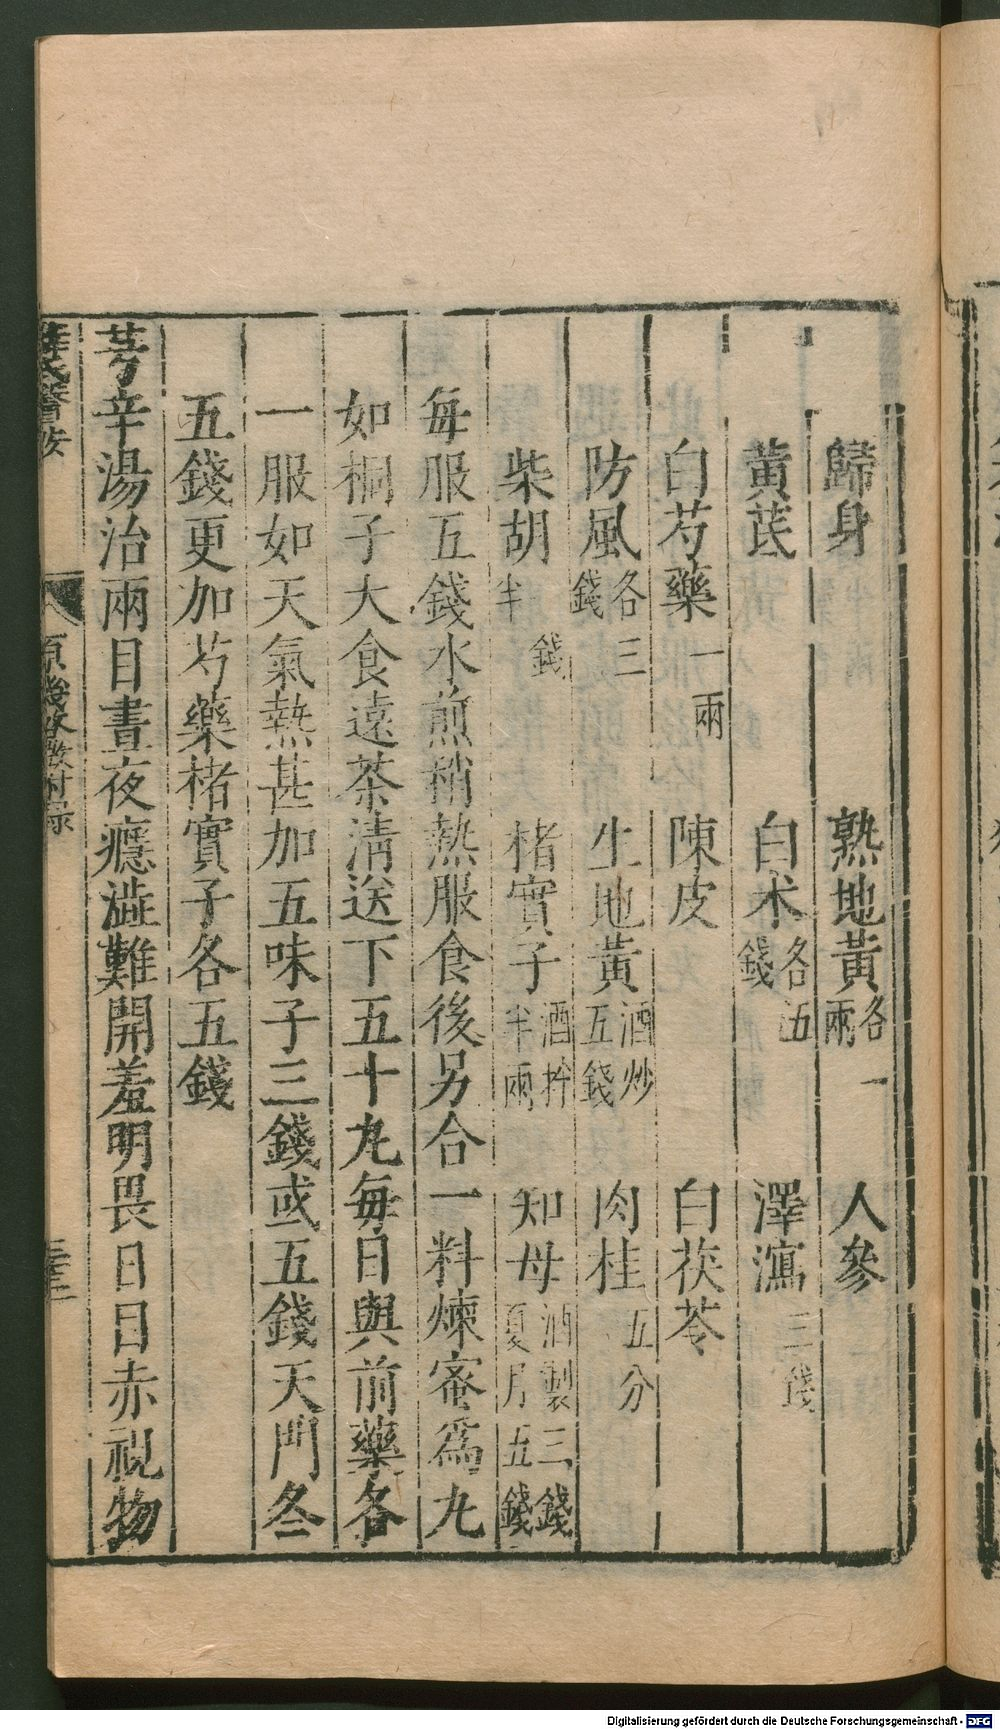 歸身 熟地黃各一兩 人參
黃芪 白术各五錢 澤瀉三錢
白芍藥一兩 陳皮 白茯苓
防風各三錢 生地黃酒炒五錢 肉桂五分
柴胡半錢 楮實子酒拌半兩 知母酒製三錢夏月五錢
每服五錢水煎稍熱服食後另合一料煉蜜爲丸
如桐子大食遠茶淸送下五十丸每日與前藥各
一服如天氣熱甚加五味子三錢或五錢天門冬
五錢更加芍藥楮實子各五錢
芎辛湯治兩目晝夜癮澁難開羞明畏日目赤視物
薛氏醫按 原機啓微附錄
Digitalisierung gefördert durch die Deutsche Forschungsgemeinschaft - DFG